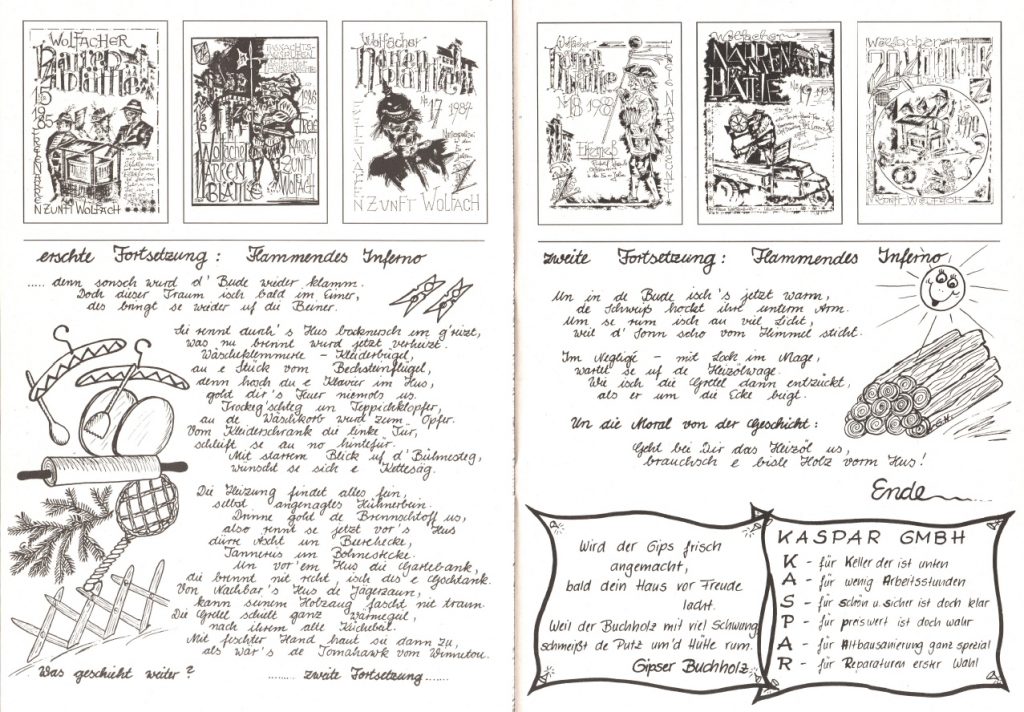 WOLFACHER
Narrenblättle
15
1985
FREIE NARRENZUNFT WOLFACH
FASNACHTS-
1986
16
Wolfacher
NARREN
BLÄTTLE
FREIE
NARREN
ZUNFT
Wolfach
Wolfacher
Narrenblättle
Nr. 17 1987
ZUNFT WOLFACH
Wolfacher
Narrenblättle
Nr 18 1988
FREIE NARRENZUNFT
Wolfacher
NARREN
BLÄTTLE
Nr. 19
Wolfacher
1990
ZUNFT WOLFACH
erschte Fortsetzung : Flammendes Inferno
..... denn sonsch wurd d' Bude wieder klamm.
Doch dieser Traum isch bald im Eimer,
des bringt se wieder uf die Beiner.
Sie rennt durch's Hus bocknersch im g'reizt,
was nu brennt wurd jetzt verheizt.
Wäschklemmere - Kleiderbügel,
au e Stück vom Bechsteinflügel,
denn hosch du e Klavier im Hus,
gold dir's Feuer niemols us.
Trockeg'schleg un Teppichklopfer,
au de Wäschkorb wurd zum Opfer.
Vom Kleiderschrank die linke Tür,
schleift se au no hintefür.
Mit starrem Blick uf d' Bühnesteg,
wünscht se sich e Kettesäg.
Die Heizung findet alles fein,
selbst angenagtes Hühnerbein.
Drinne gohd de Brennschtoff us,
also rennt se jetzt vor's Hus
dürre Äscht un Bierchecke,
Tannerus un Bohnestecke.
Un vor'em Hus die Gartebank,
die brennt nit recht, isch des e Gschdank.
Von Nachbar's Hus de Jägerzaun,
kann seinem Holzaug fascht nit traun.
Die Gretel schielt ganz wärmegeil,
nach ihrem alte Küchebeil.
Mit feschter Hand haut sie dann zu,
als wär's de Tomahawk vom Winnetou.
Was geschieht weiter ? ........ zweite Fortsetzung .......
zweite Fortsetzung : Flammendes Inferno
Un in de Bude isch's jetzt warm,
de Schweiß hocket ihre unterm Arm.
Um se rum isch au viel Licht,
weil d' Sonn scho vom Himmel sticht.
Im Negligé - mit Loch im Mage,
wartet se uf de Heizölwage.
Wie isch die Gretel dann entzückt,
als er um die Ecke biegt.
Un die Moral von der Geschicht :
Geht bei Dir das Heizöl us,
brauchsch e bisle Holz vorm Hus!
Ende
Wird der Gips frisch
angemacht,
bald dein Haus vor Freude
lacht.
Weil der Buchholz mit viel Schwung
schmeißt de Putz um'd Hütte rum.
Gipser Buchholz
KASPAR GMBH
K - für Keller der ist unten
A - für wenig Arbeitsstunden
S - für schön u. sicher ist doch klar
P - für preiswert ist doch wahr
A - für Altbausanierung ganz spezial
R - für Reparaturen erster Wahl